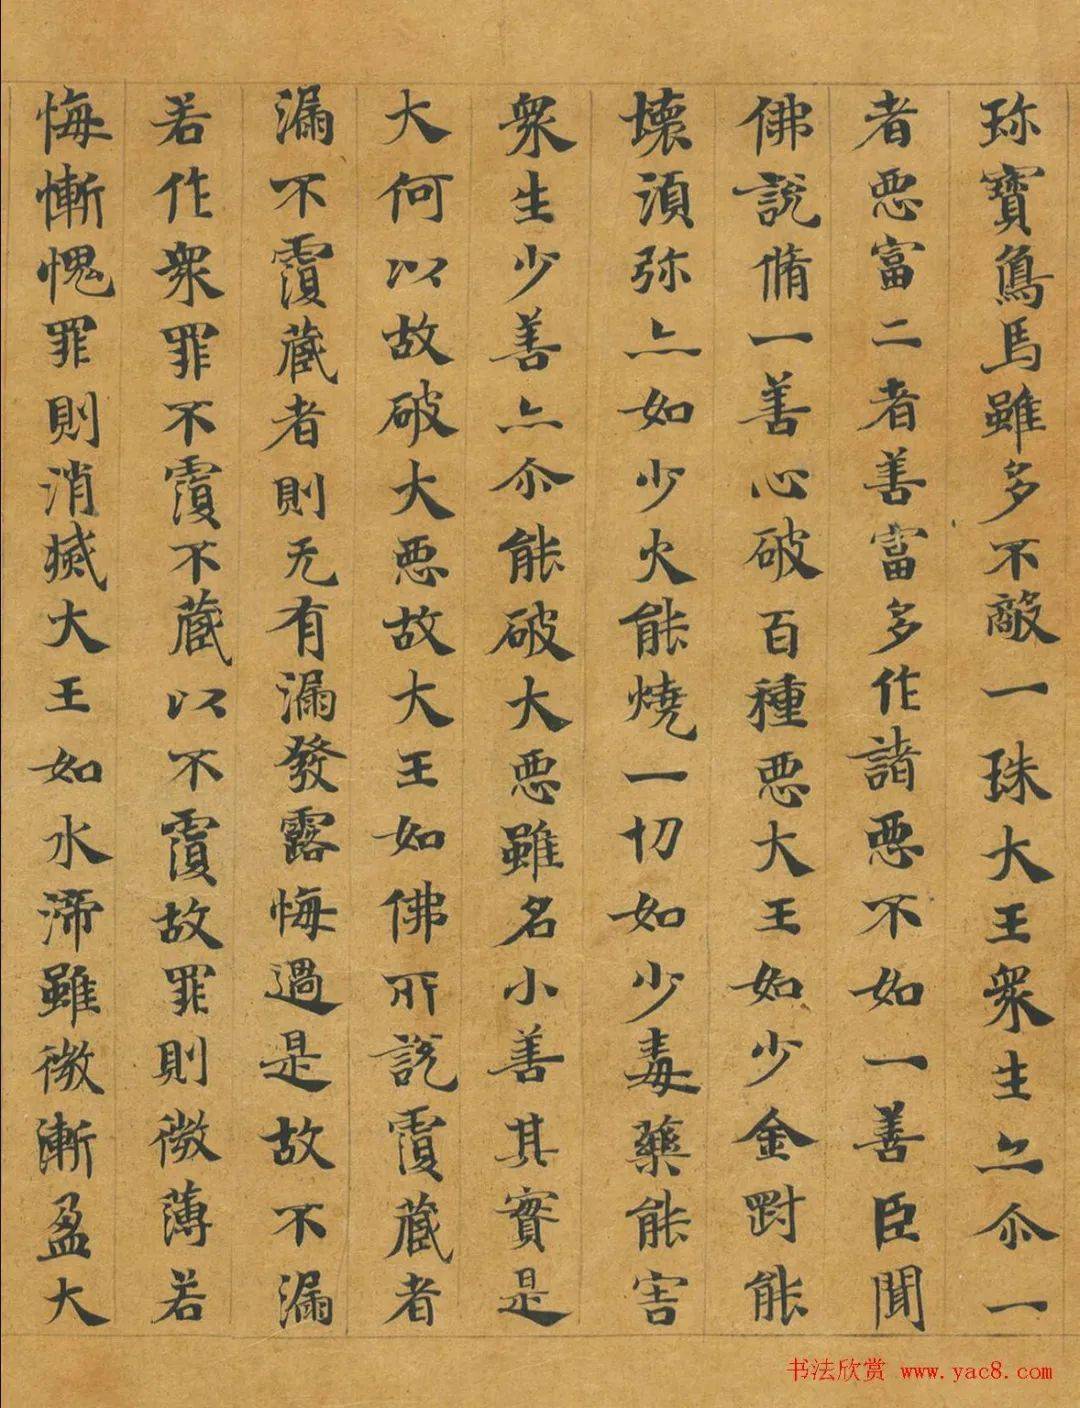 珎寶鳥馬雖多不敵一珠大王衆生亦尒一
者惡富二者善富多作諸惡不如一善臣聞
佛說脩一善心破百種惡大王如少金對能
壞須弥亦如少火能燒一切如少毒藥能害
衆生少善亦尒能破大惡雖名小善其實是
大何以故破大惡故大王如佛所說覆藏者
漏不覆藏者則无有漏發露悔過是故不漏
若作衆罪不覆不藏以不覆故罪則微薄若
悔慚愧罪則消滅大王如水渧雖微漸盈大
书法欣赏 www.yac8.com